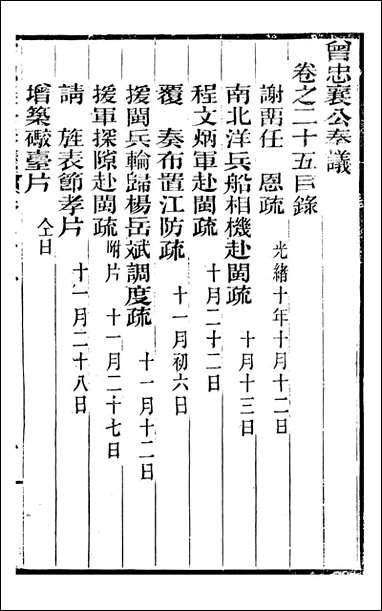 曾忠襄公奏議
卷之二十五目錄
謝蒞任 恩疏 光緒十年十月十二日
南北洋兵船相機赴閩疏 十月十三日
程文炳軍赴閩疏 十月二十二日
覆 奏布置江防疏 十一月初六日
援閩兵輪歸楊岳斌調度疏 十一月十二日
援軍探隙赴閩疏 附片 十一月二十七日
請 旌表節孝片 十一月二十八日
增築礮臺片 仝日